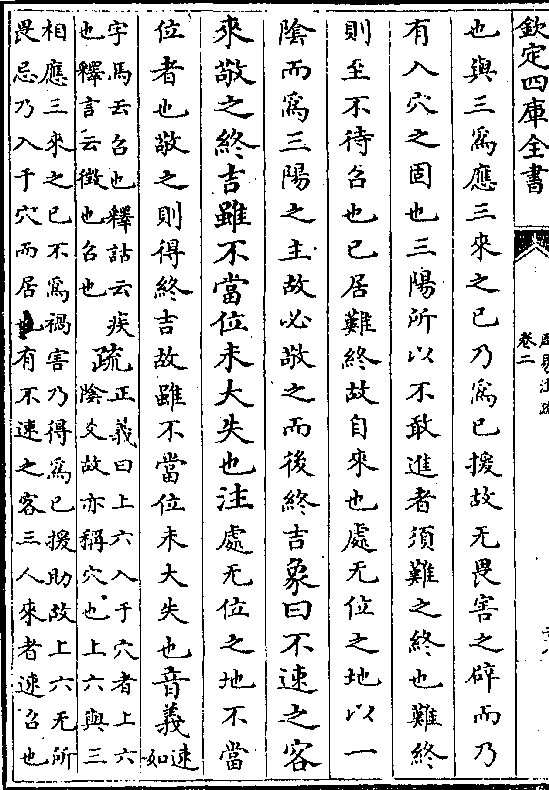 欽定四庫全書
卷二
也與三爲應三來之已乃爲已援故无畏害之辟而乃
有入穴之固也三陽所以不敢進者須難之終也難終
則至不待召也已居難終故自來也處无位之地以一
陰而爲三陽之主故必敬之而後終吉象曰不速之客
來敬之終吉雖不當位未大失也注處无位之地不當
位者也敬之則得終吉故雖不當位未大失也音義速如
字馬云召也釋詁云疾
也釋言云徵也召也
疏正義曰上六入于穴者上六
陰爻故亦稱穴也上六與三
相應三來之已不爲禍害乃得爲已援助故上六无所
畏忌乃入于穴而居也有不速之客三人來者速召也